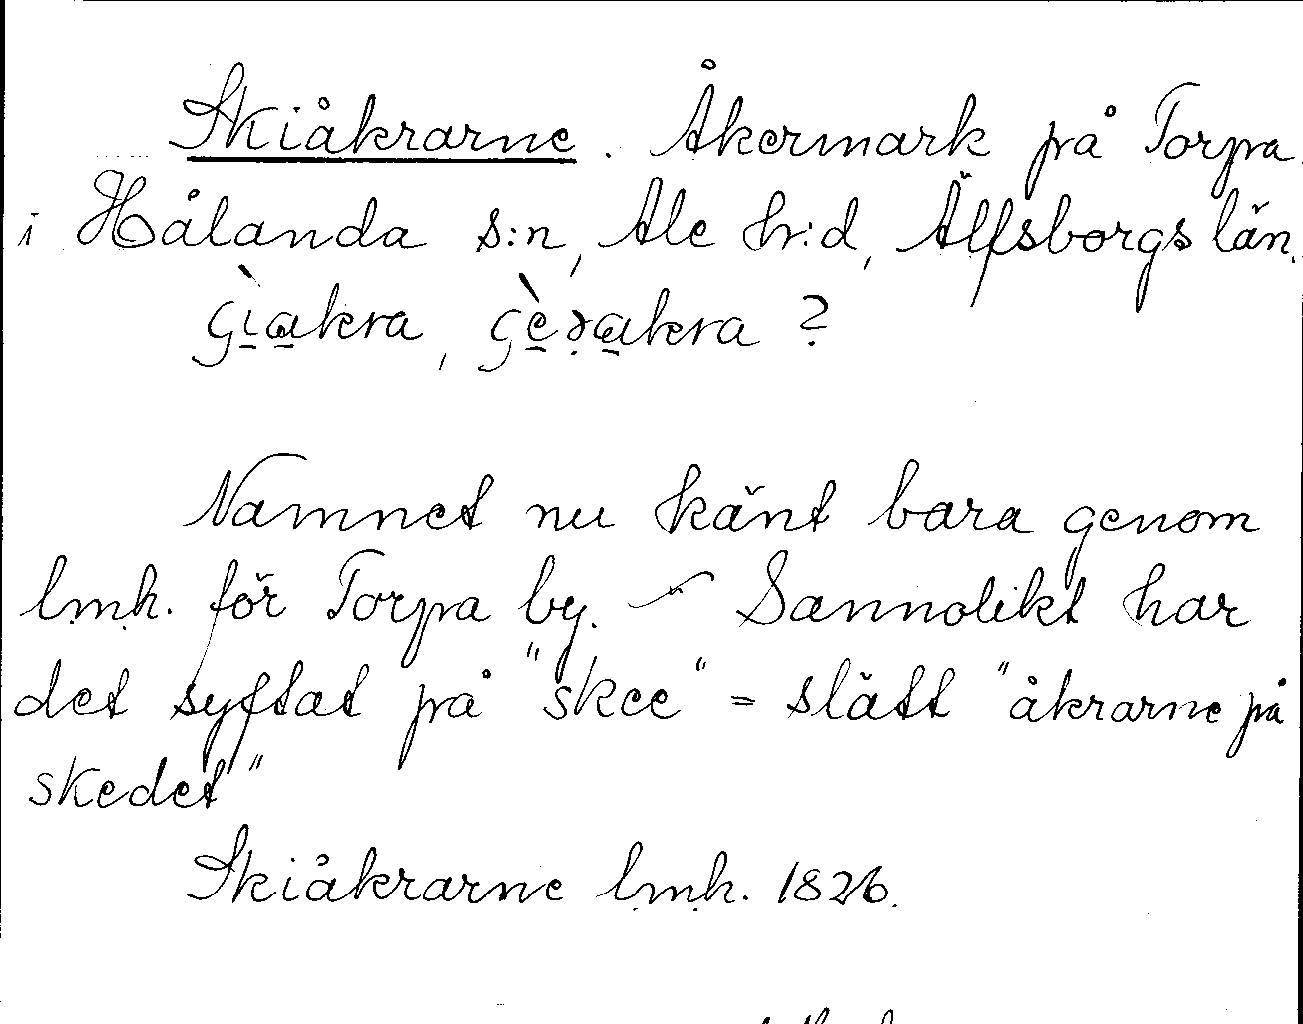 Skiåkrarne. Åkermark på Torpa
i Hålanda s:n, Ale hr:d, Älfsborgs län.
Namnet nu känt bara genom
lmh. för Torpa by. – Sannolikt har
det syftat på "skee" = slätt "åkrarne på
skedet"
Skiåkrarne lmh. 1826.